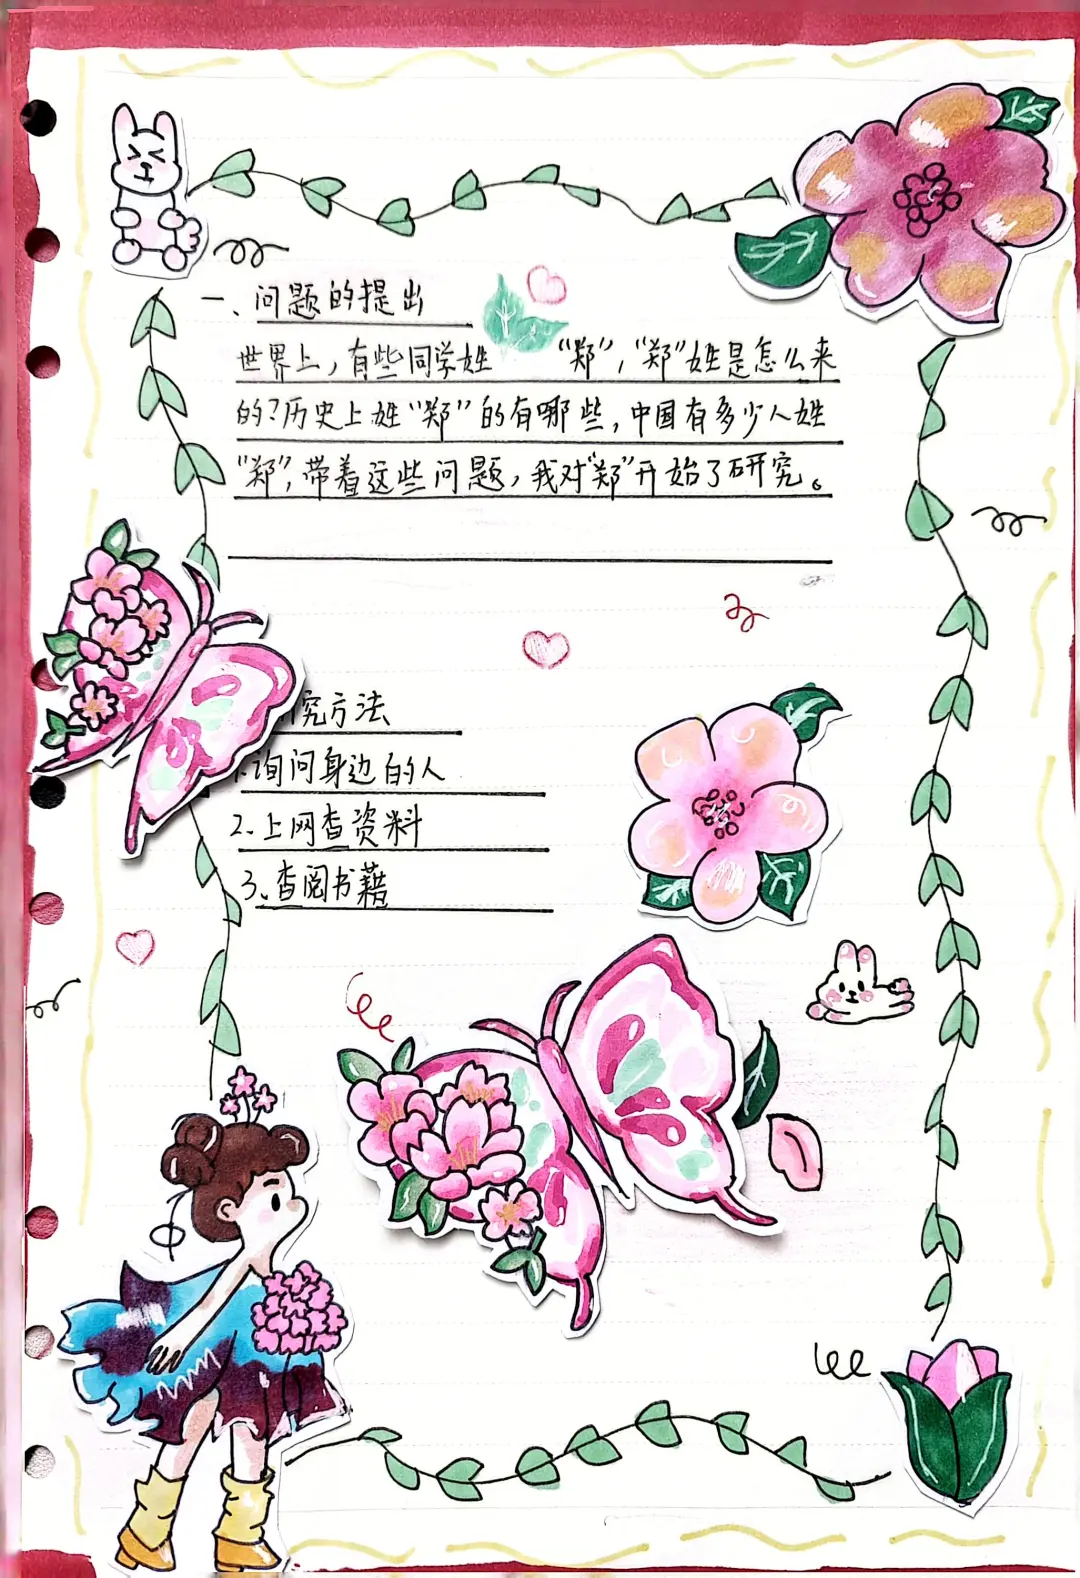 一、问题的提出
世界上，有些同学姓 “郑”，“郑”姓是怎么来
的？历史上姓“郑”的有哪些，中国有多少人姓
“郑”，带着这些问题，我对“郑”开始了研究。
究方法
1.询问身边的人
2.上网查资料
3.查阅书籍